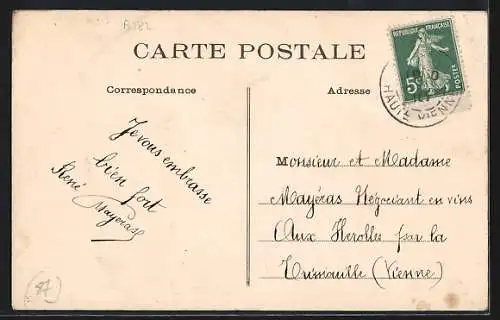 CARTE POSTALE
Correspondance
Adresse
REPUBLIQUE FRANÇAISE
5c
POSTES
HAUTE VIENNE
Je vous embrasse
bien fort
René
Mayéras
Monsieur et Madame
Mayéras Négociant en vins
Aux Herolles par la
Trimouille (Vienne)
87